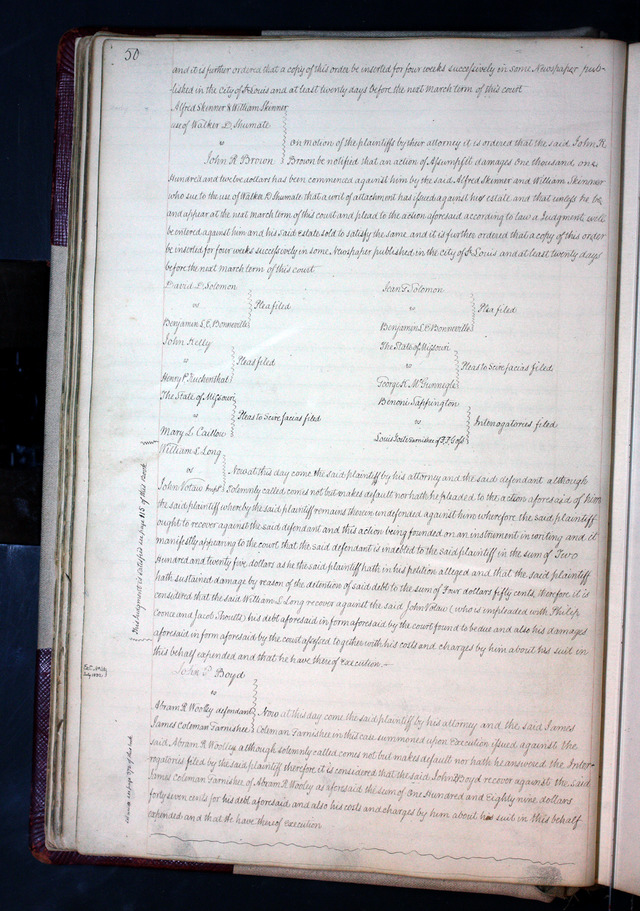 50
and it is further ordered that a copy of this order be inserted for four weeks successively in some Newspaper pub-
lished in the city of St Louis and at least twenty days before the next march term of this court
Alfred Skinner & William Skinner
use of Walker D. Shumate
vs
on motion of the plaintiffs by their attorney it is ordered that the said John R
John R Brown
Brown be notified that an action of Assumpsit damages one thousand one
Hundred and twelve dollars has been commenced against him by the said Alfred Skinner and William Skinner
who sue to the use of Walker D Shumate that a writ of attachment has issued against his estate and that unless he be
and appear at the next march term of this court and plead to the action aforesaid according to law a Judgment will
be entered against him and his said estate sold to satisfy the same and it is further ordered that a copy of this order
be inserted for four weeks successively in some Newspaper published in the city of St Louis and at least twenty days
before the next march term of this court
David D. Solomon
vs
Plea filed
Benjamin L. E. Bonneville
Solomon
vs
Plea filed
Benjamin L E Bonneville
John Kelly
vs
Pleas filed
Henry P.
The State of Missouri
vs
Pleas to Scire facias filed
George K. McGunnegle
The State of Missouri
vs
Pleas to Scire facias filed
Mary L
Benoni Sappington
vs
Interogatories filed
Louis Garnishee of
William L Long
vs
Now at this day come the said plaintiff by his attorney and the said defendant although
John Volaw Imp.
Solemnly called comes not but makes default nor hath he pleaded to the action aforesaid of him
the said plaintiff whereby the said plaintiff remains therein undefended against him wherefore the said plaintiff
ought to recover against the said defendant and this action being founded on an instrument in writing and it
manifestly appearing to the court that the said defendant is indebted to the said plaintiff in the sum of Two
Hundred and twenty five dollars as he the said plaintiff hath in his petition alleged and that the said plaintiff
hath sustained damage by reason of the detention of said debt to the sum of Four dollars fifty cents, therefore it is
considered that the said William L Long recover against the said John Volaw (who is impleaded with Philip
Coonce and Jacob ) his debt aforesaid in form aforesaid by the court found to be due and also his damages
aforesaid in form aforesaid by the court assessed together with his costs and charges by him about his suit in
this behalf expended and that he have thereof Execution.—
This Judgment is satisfied see page 115 of this Book
John P Boyd
vs
Abram R Woolley defendant
Now at this day come the said plaintiff by his attorney and the said James
James Coleman Garnishee
Coleman Garnishee in this case summoned upon Execution issued against the
said Abram R Woolley although solemnly called comes not but makes default nor hath he answered the Inter-
rogatories filed by the said plaintiff therefore it is considered that the said John P Boyd recover against the said
James Coleman Garnishee of Abram R Wooley as aforesaid the sum of One Hundred and Eighty nine dollars
forty seven cents for his debt aforesaid and also his costs and charges by him about his suit in this behalf
expended and that He have thereof Execution